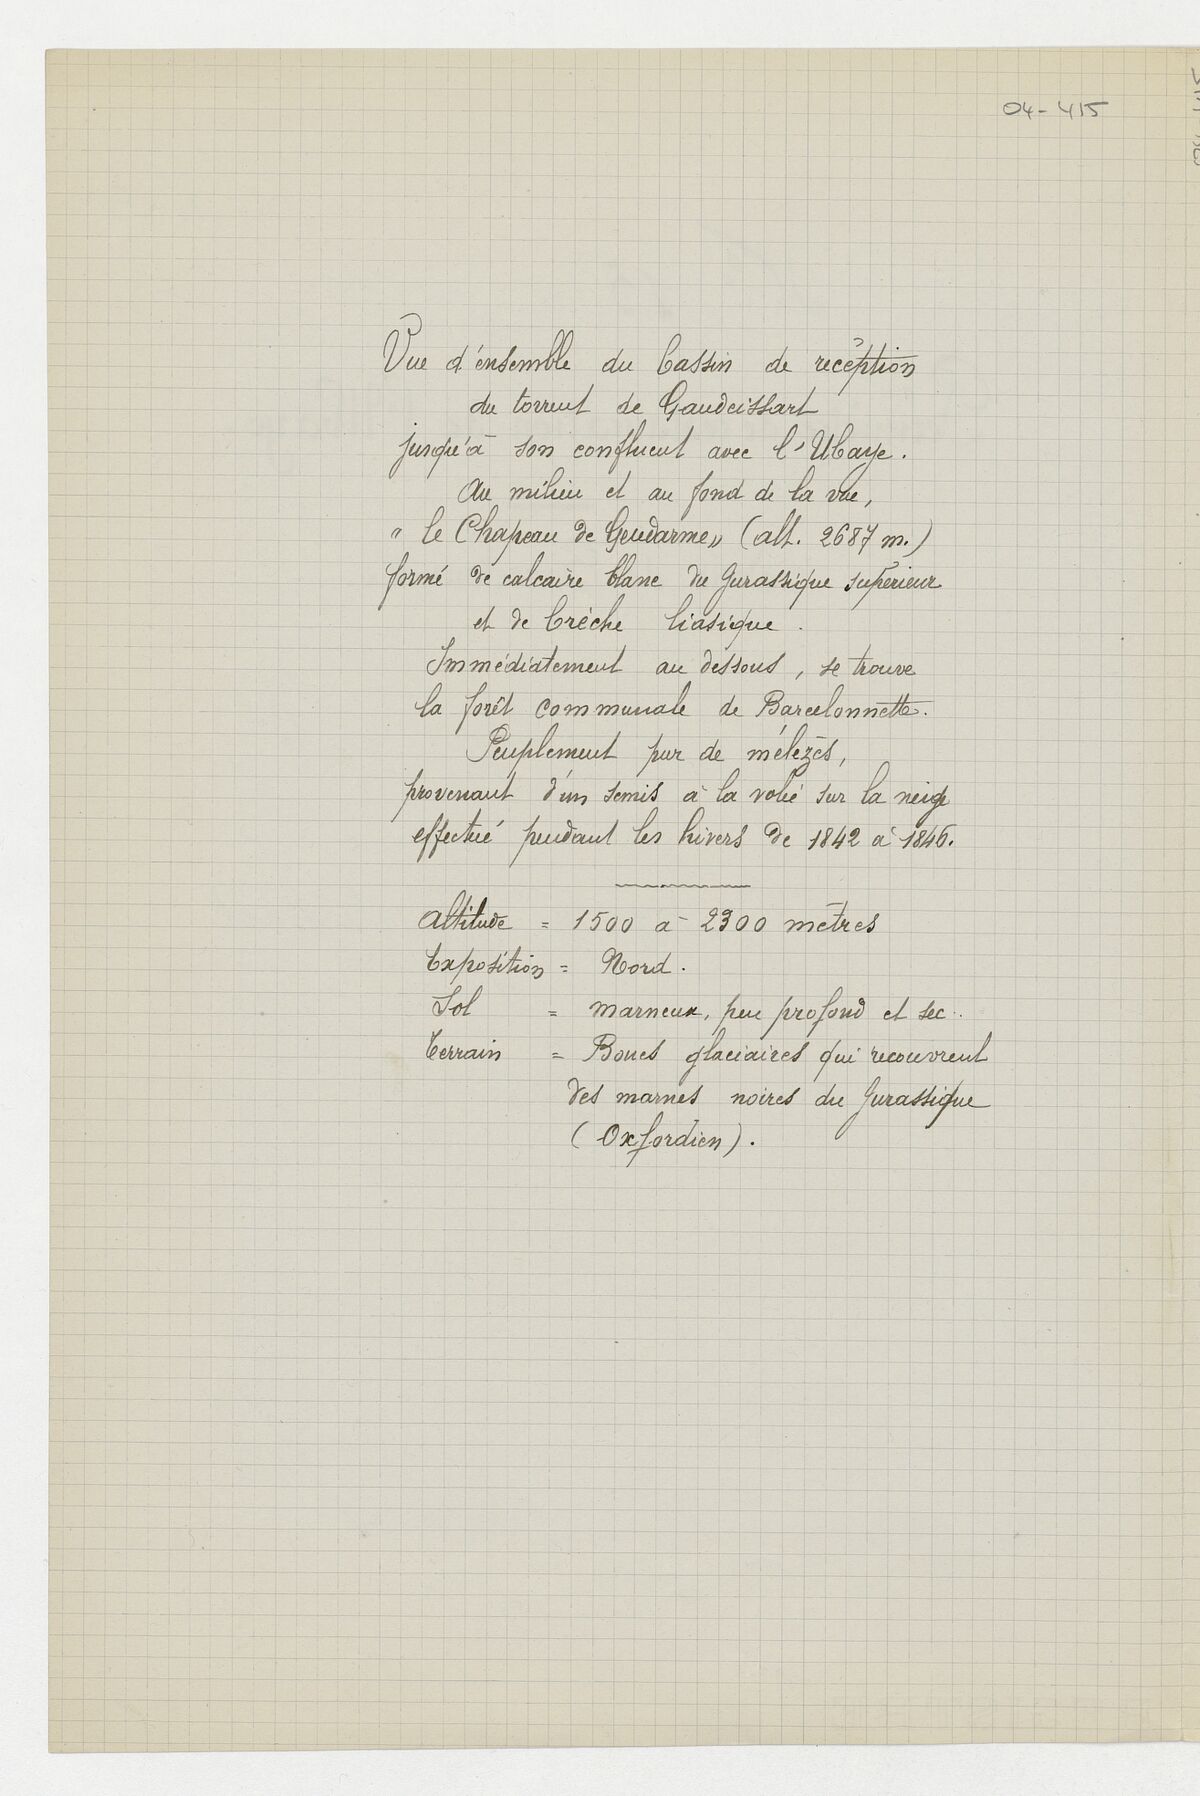 04-415
Vue d'ensemble du bassin de réception
du torrent de Gaudeissart
jusqu'à son confluent avec l'Ubaye.
Au milieu et au fond de la vue,
"le Chapeau de Gendarme" (alt. 2687 m.)
formé de calcaire blanc du Jurassique supérieur
et de brèche liasique.
Immédiatement au dessous, se trouve
la forêt communale de Barcelonnette.
Peuplement pur de mélèzes,
provenant d'un semis à la volée sur la neige
effectué pendant les hivers de 1842 à 1846.
Altitude = 1500 à 2300 mètres
Exposition = Nord.
Sol = marneux, peu profond et sec.
Terrain = Boues glaciaires qui recouvrent
des marnes noires du Jurassique
(Oxfordien).